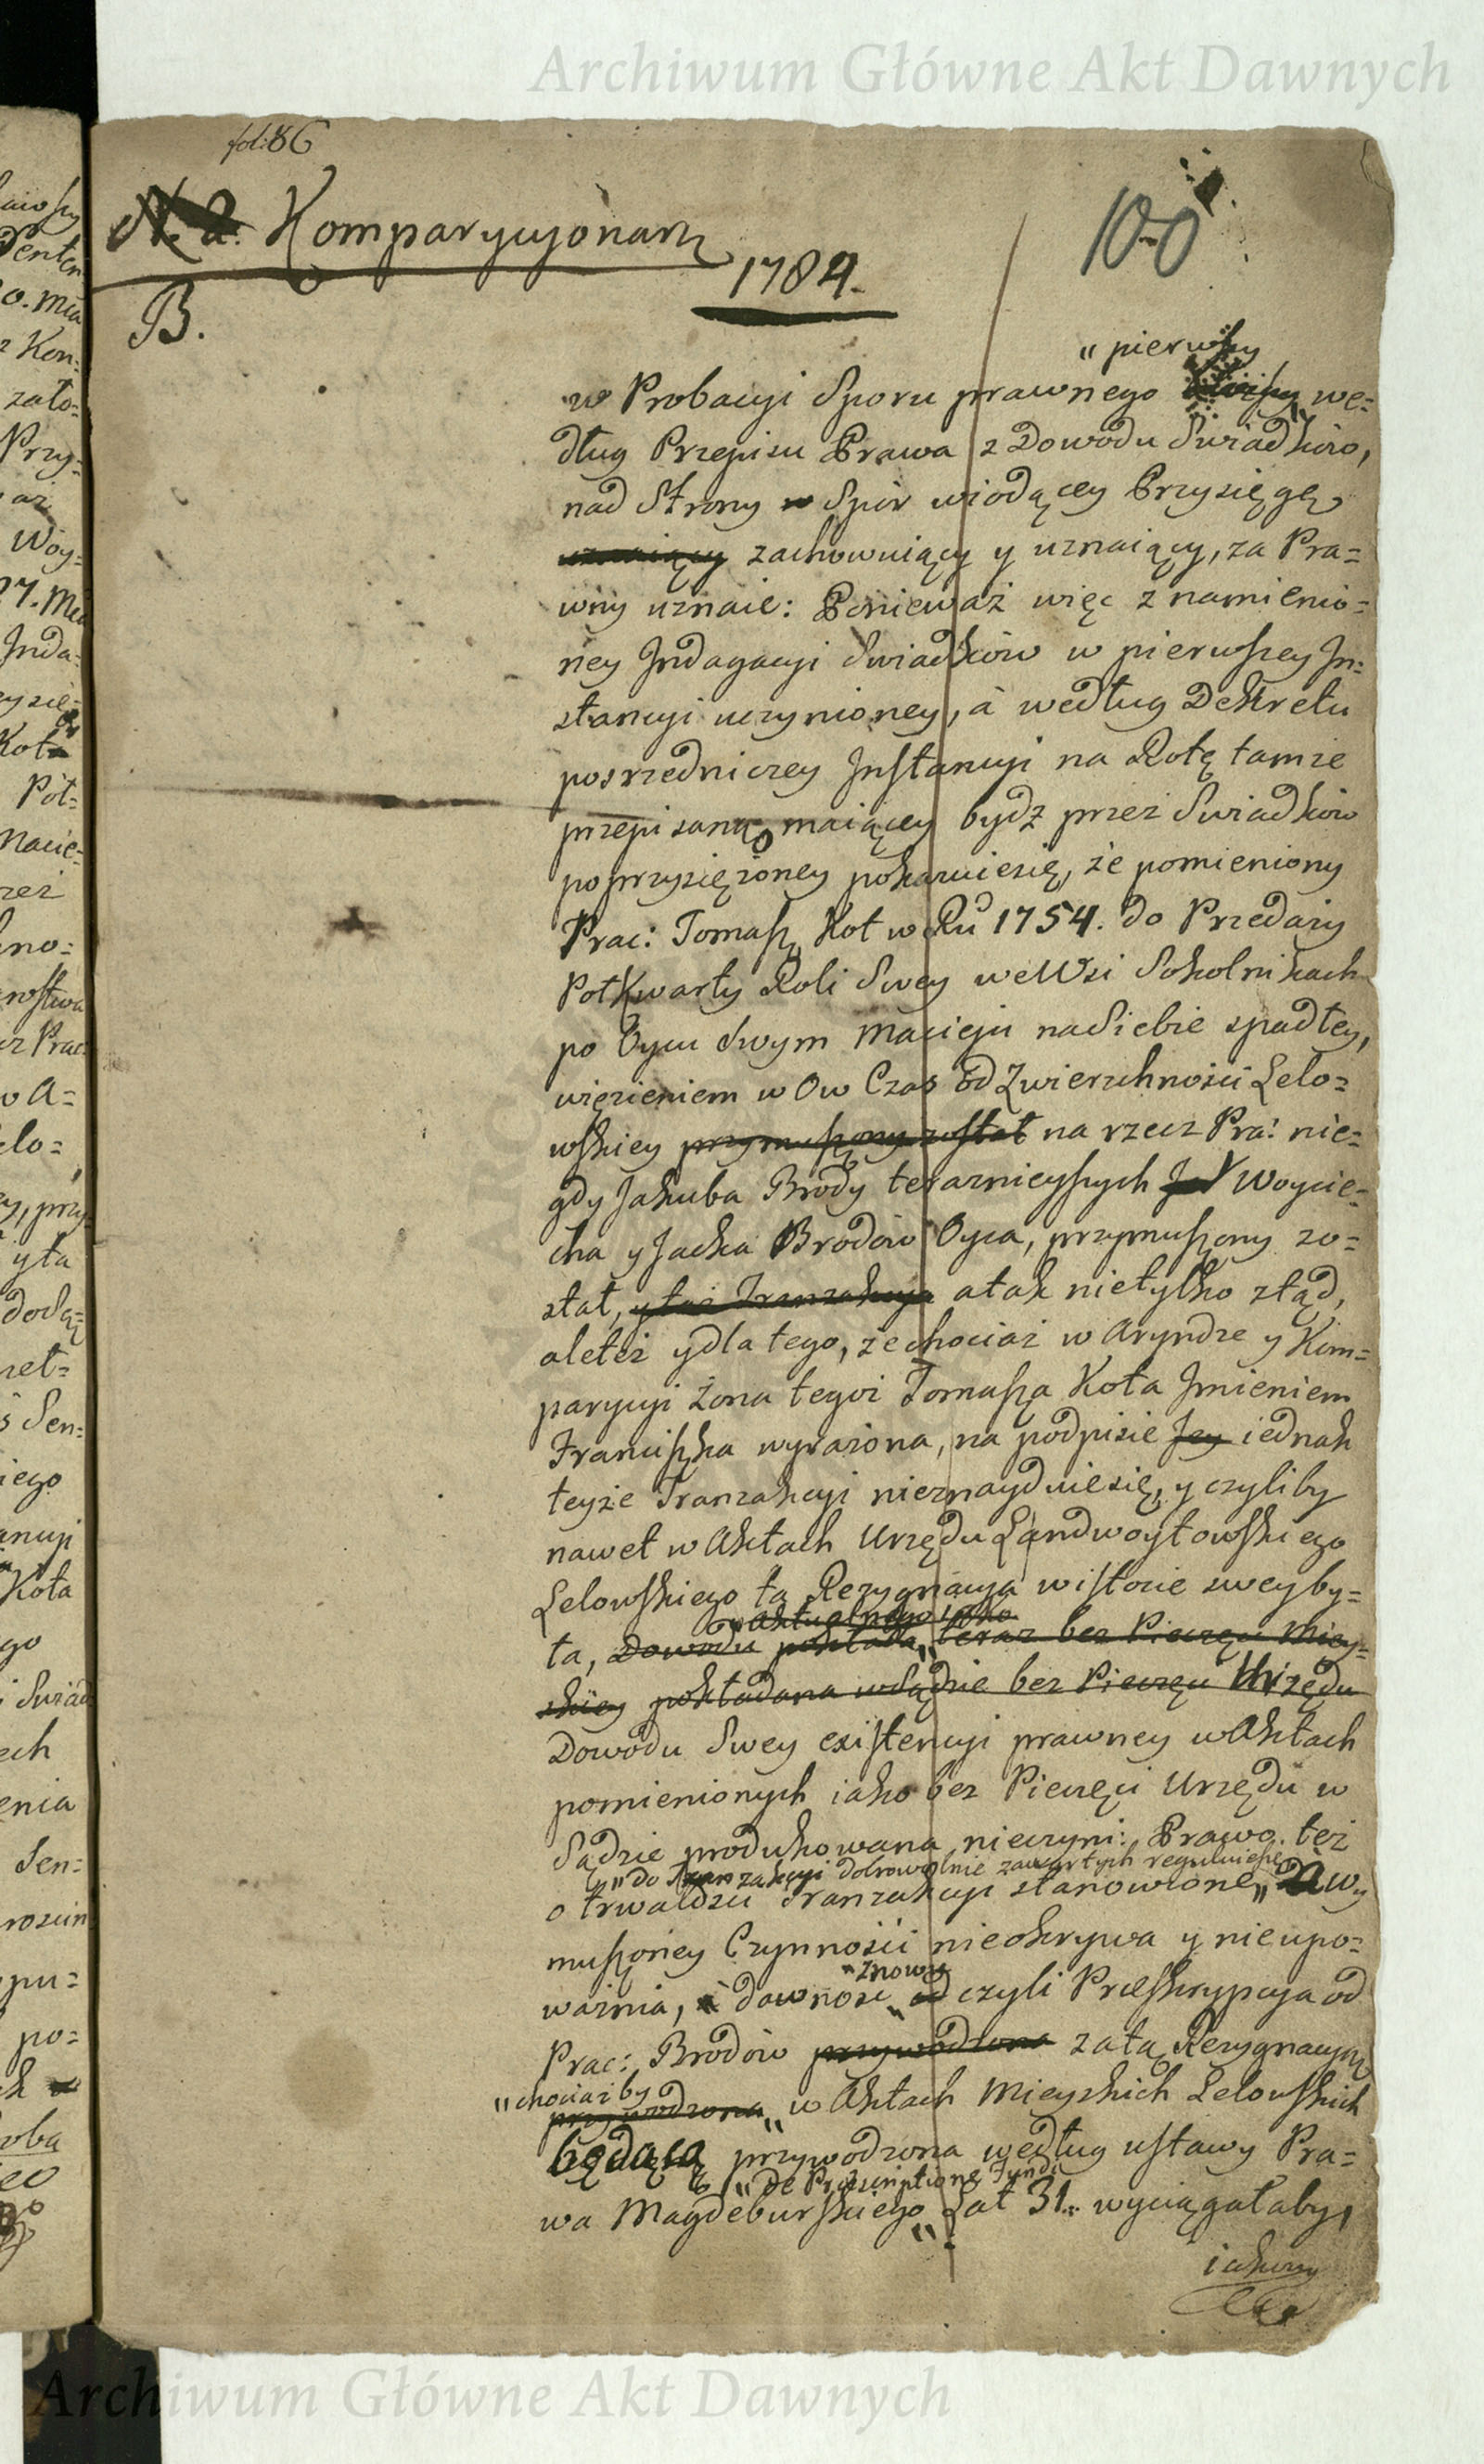 Archiwum Główne Akt Dawnych
fol: 86
N. 2. Komparycyionarz
100
1784.
B.
"pierwszy
w Probacyi Sporu prawnego we=
dług Przepisu Prawa z Dowodu Swiadków,
nad Strony w Spór wiodącey Przysięgę
uznaiący zachowuiący y uznaiący, za Pra=
wny uznaie: Ponieważ więc z namienio=
ney Indagacyi Swiadków w pierwszey In=
stancyi uczynioney, à według Dekretu
posrzedniczey Instancyi na Rotę tamże
przepisaną maiącey bydz przez Swiadków
poprzysiężoney pokazuiesię, że pomieniony
Prac: Tomasz Kot w Ru 1754. do Przedaży
Poł Kwarty Roli Swey we Wsi Sokolnikach
po Oycu Swym Macieju na Siebie spadłey,
więzieniem w Ow Czas od Zwierzchności Lelo=
wskiey przymuszony został na rzecz Pra: nie=
gdy Jakuba Brody teraznieyszych Woycie=
cha y Jacka Brodów Oyca, przymuszony zo=
stał, ytaż Tranzakcya atak nietylko ztąd,
aleteż ydla tego, że chociaż w Aryndze y Kom=
parycyi Żona tegoż Tomasza Kota Imieniem
Franciszka wyrażona, na podpisie Jey iednak
teyże Tranzakcyi nieznayduiesię, y czyliby
nawet w Aktach Urzędu Landwoytowskiego
Lelowskiego ta Rezygnacya wistocie swey by=
"Aktualnego iako
ła, Dowodu pokłada, "teraz bez Pieczęci Miey=
skiey pokładana w Sądzie bez Pieczęci Urzędu
Dowodu Swey existencyi prawney w Aktach
pomienionych iako bez Pieczęci Urzędu w
Sądzie produkowana nieczyni: Prawo też
"do Tranzakcyi dobrowolnie zawartych reguluiesię
o trwałości Tranzakcyi stanowione, " à wy
muszoney Czynności nieokrywa y nieupo=
"znowu
ważnia, à dawność " od czyli Preskrypcya od
Prac: Brodów przywodzona zatą Rezygnacyą
"chociażby
przywodzona " w Aktach Mieyskich Lelowskich
będącą przywodzona według ustawy Pra=
"de Praescriptione Fundi
wa Magdeburskiego " Lat 31.: wyciągałaby,
iakowy
Archiwum Główne Akt Dawnych